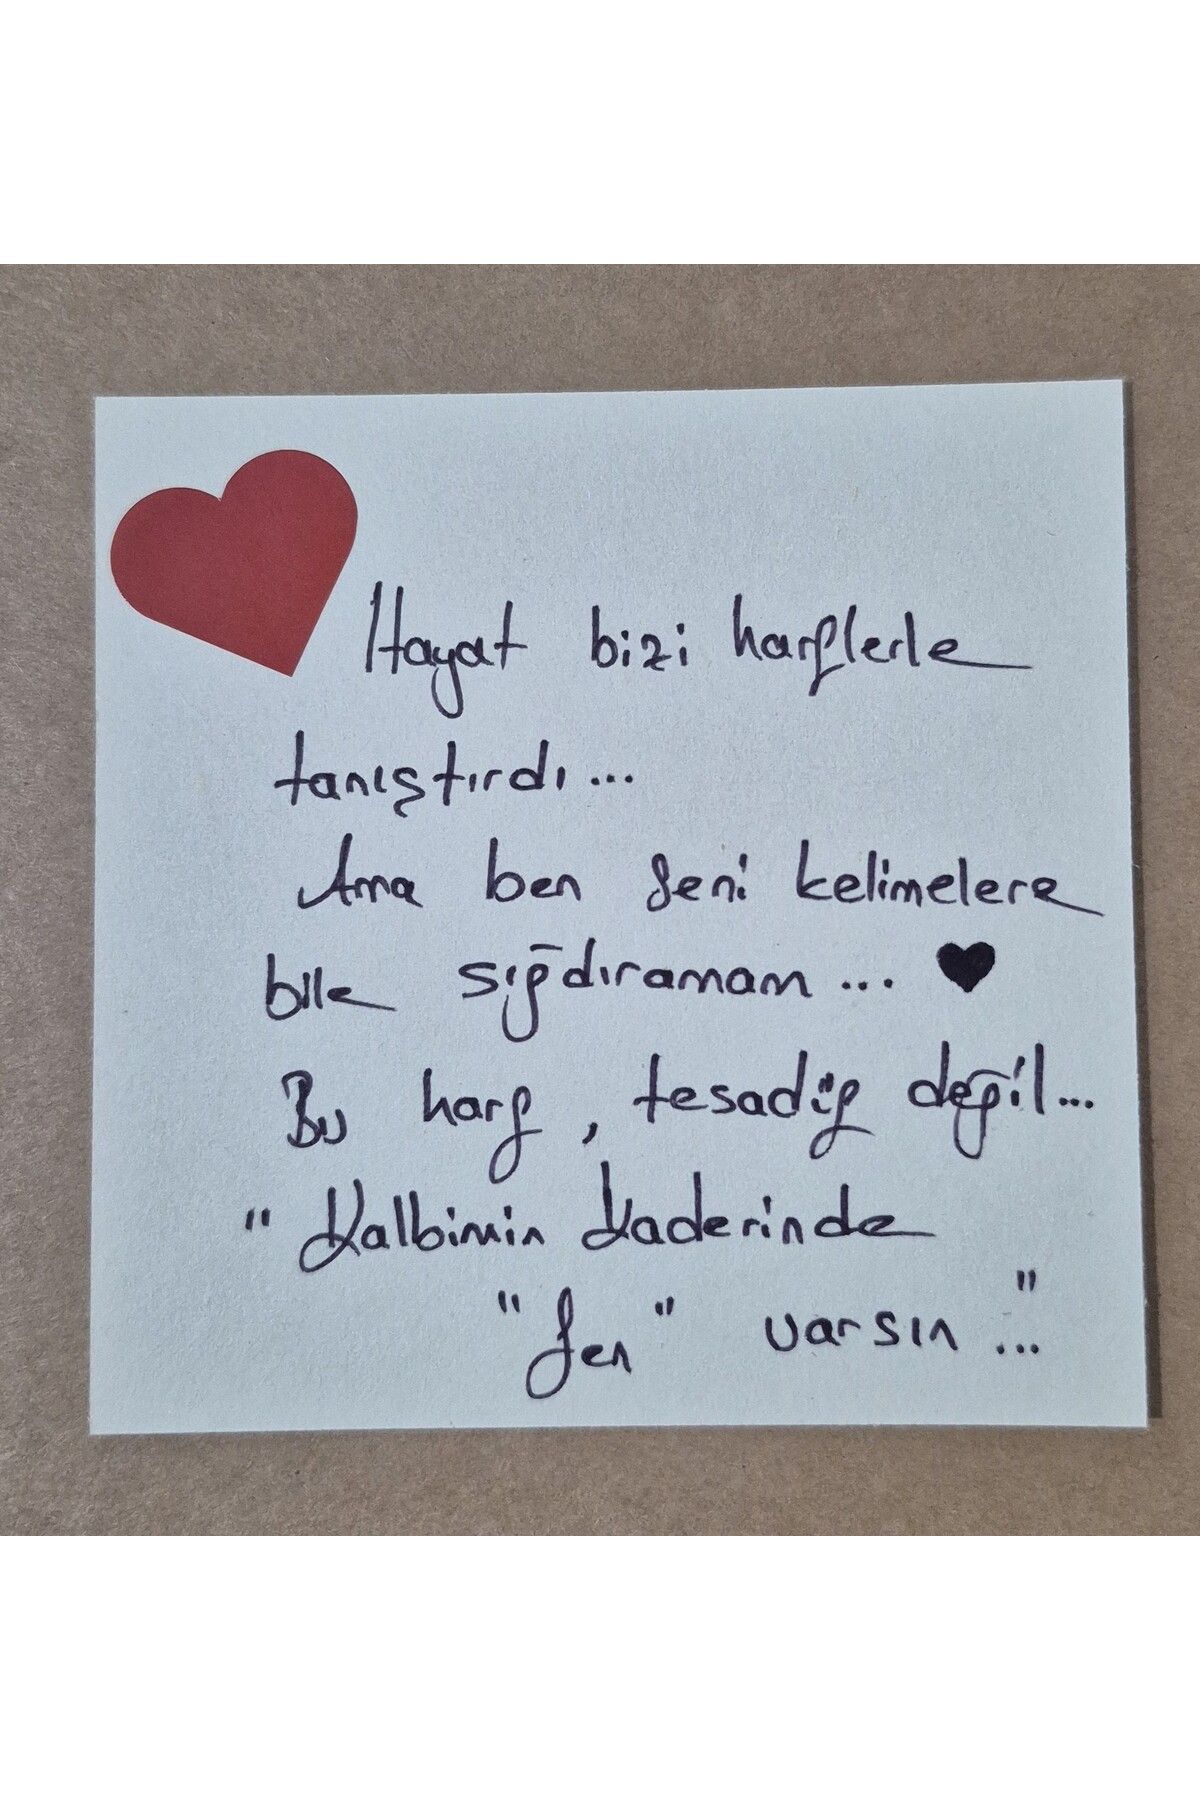 Hayat bizi harflerle
tanıştırdı...
Ama ben seni kelimelere
bile sığdıramam... ♥
Bu harf, tesadüf değil...
"Kalbimin kaderinde
"Sen" varsın..."